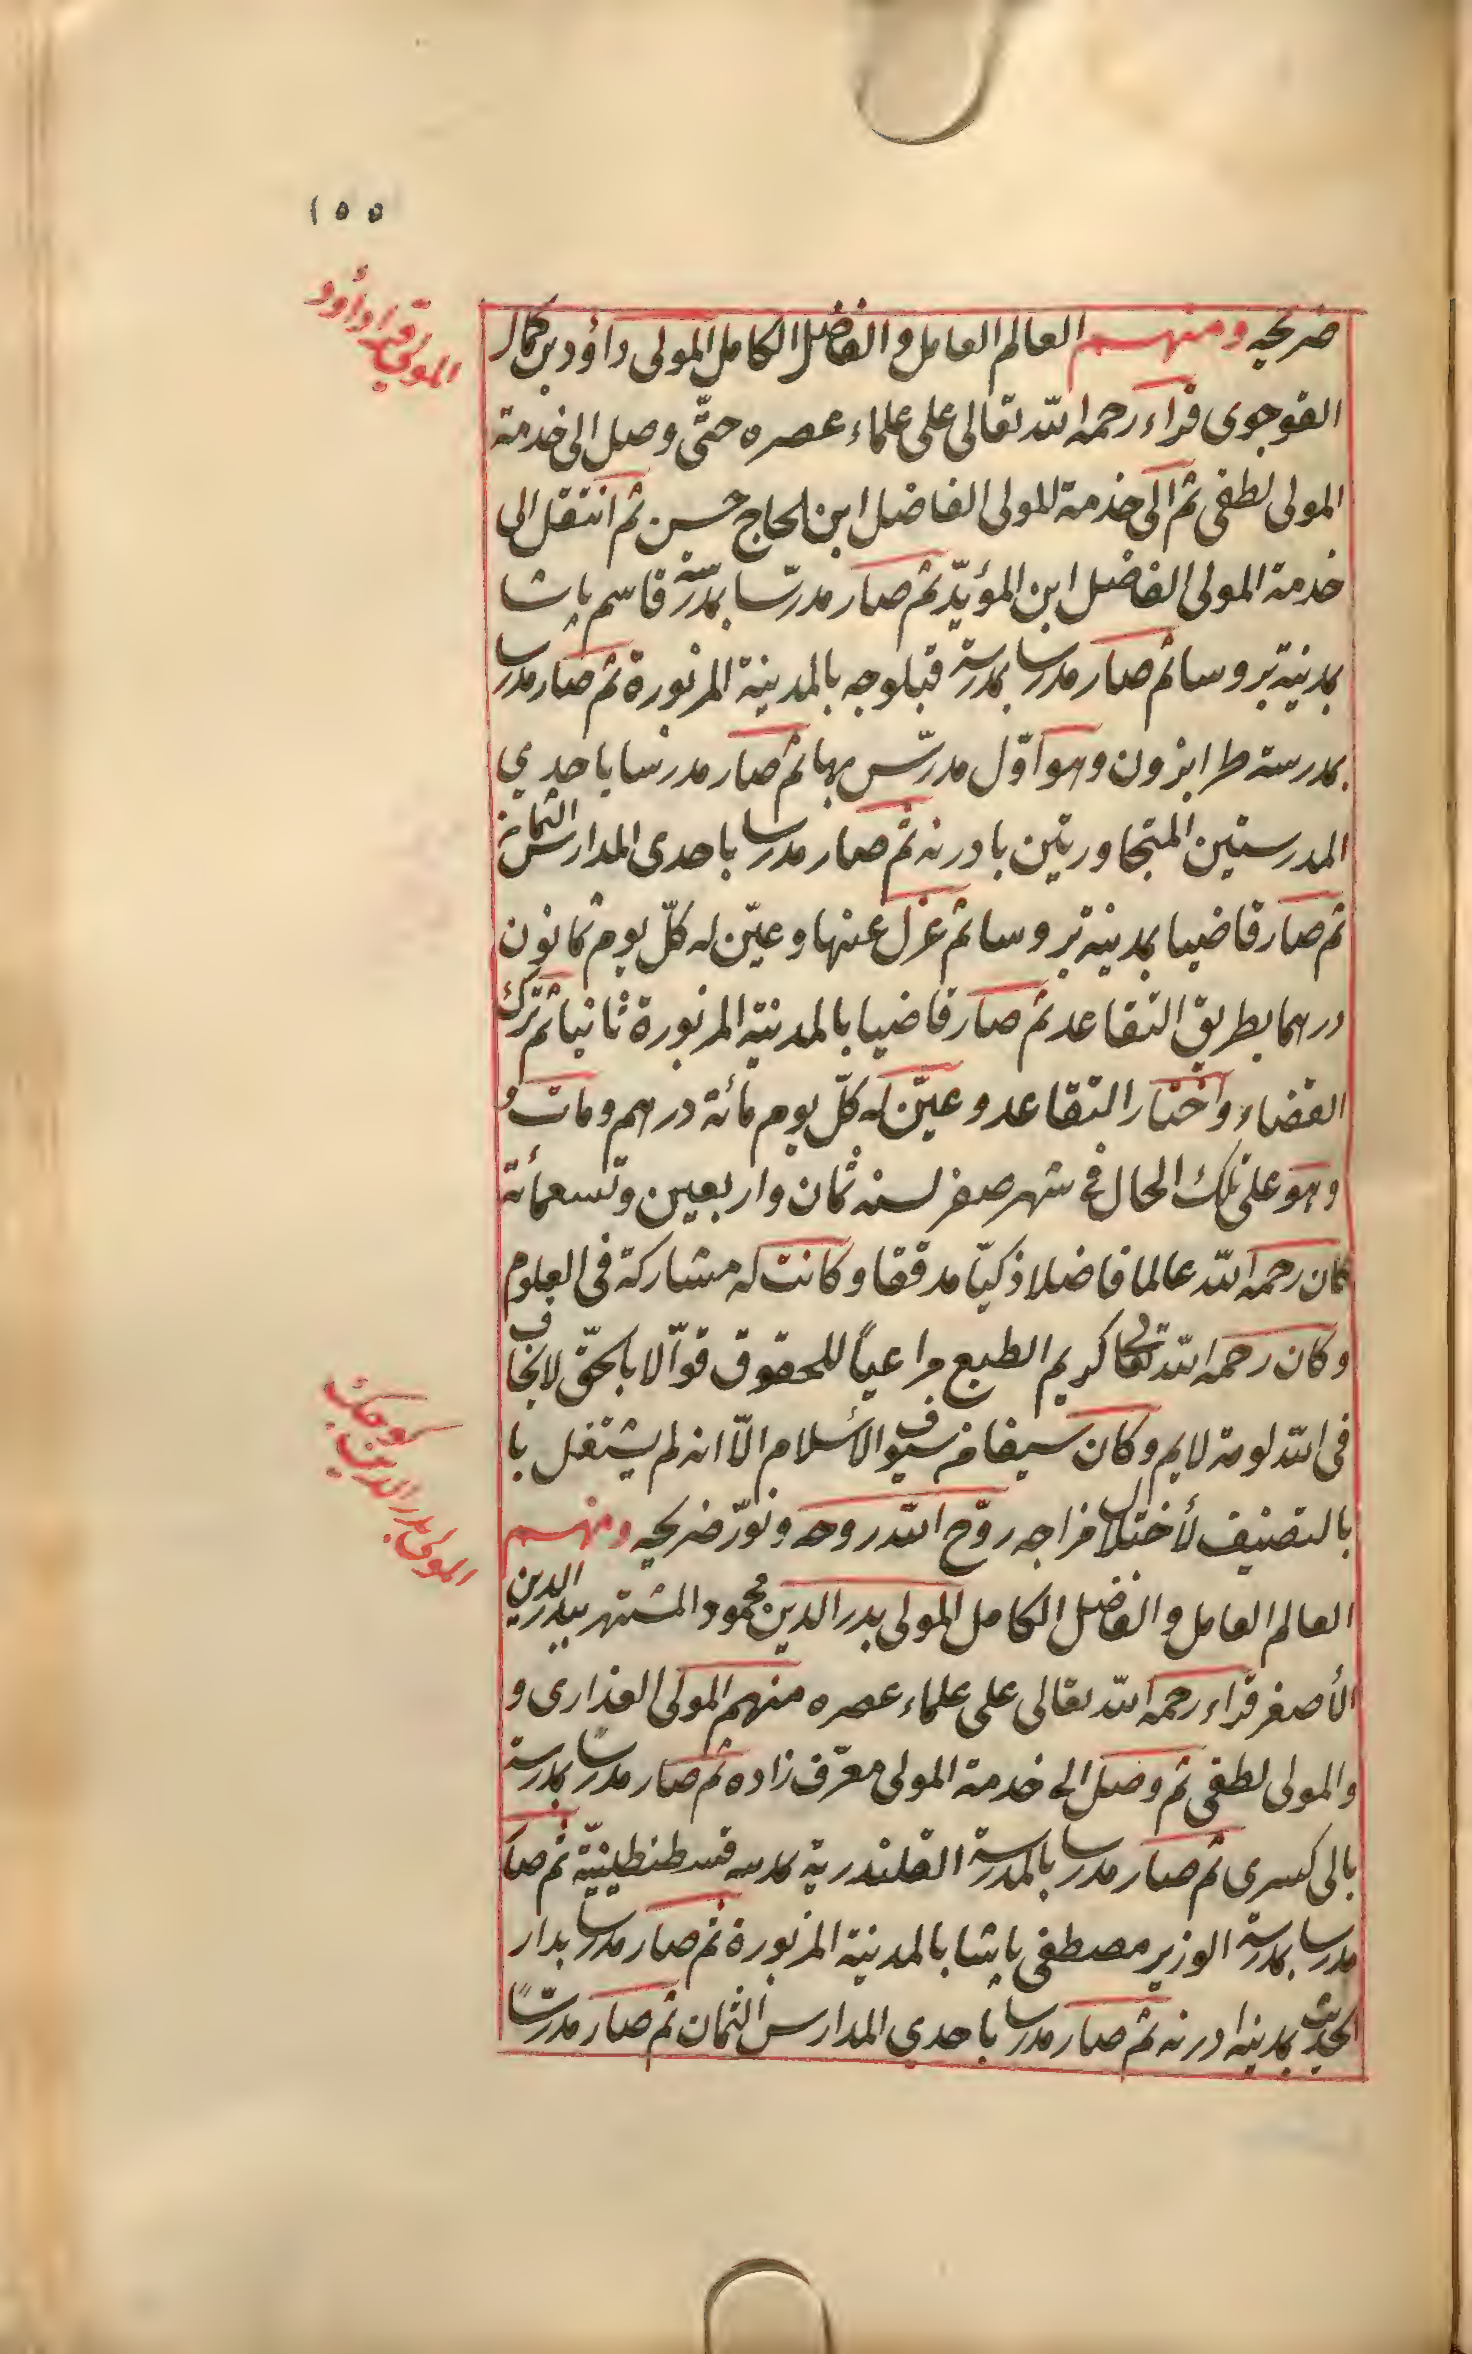 ١٥٥
المولى قرا داود
ضريحه ومنهم العالم العامل والفاضل الكامل المولى داؤد بن كمال
القوجوى قراء رحمه الله تعالى على علماء عصره حتّى وصل الى خدمة
المولى لطفى ثم الى خدمة المولى الفاضل ابن الحاج حسن ثم انتقل الى
خدمة المولى الفاضل ابن المؤيّد ثم صار مدرّسا بمدرسة قاسم پاشا
بمدينة بروسا ثم صار مدرسا بمدرسة قبلوجه بالمدينة المزبورة ثم صار مدرسا
بمدرسة طرابزون وهو اوّل مدرّس بها ثم صار مدرسا باحدي
المدرستين المتجاورتين بادرنه ثم صار مدرسا باحدى المدارس الثمانية
ثم صار قاضيا بمدينة بروسا ثم عزل عنها وعيّن له كلّ يوم ثمانون
درهما بطريق التقاعد ثم صار قاضيا بالمدينة المزبورة ثانيا ثم ترك
القضاء واختار التقاعد وعيّن له كلّ يوم مائة درهم ومات و
وهو على تلك الحال فى شهر صفر لسنه ثمان واربعين وتسعمائة
كان رحمه الله عالما فاضلا ذكيّا مدققا وكانت له مشاركة فى العلوم
وكان رحمه الله تعالى كريم الطبع مراعياً للحقوق قوّالا بالحقّ لا يخاف
فى الله لومة لايم وكان سيفا من سيوف الأسلام الّا انه لم يشتغل با
بالتصنيف لأختلال مزاجه روّح الله روحه ونوّر ضريحه ومنهم
المولى بدر الدين كوجك
العالم العامل والفاضل الكامل المولى بدر الدين محمود المشتهر ببدر الدين
الأصغر قراء رحمه الله تعالى على علماء عصره منهم المولى الفذارى و
والمولى لطفى ثم وصل الى خدمة المولى معرّف زاده ثم صار مدرساً بمدرسة
بالى كسرى ثم صار مدرسا بالمدرسة القلندرية بمدينه قسطنطينيّة ثم صار
مدرسا بمدرسة الوزير مصطفى پاشا بالمدينة المزبورة ثم صار مدرسا بدار
الحديث بمدينه ادرنه ثم صار مدرسا باحدي المدارس الثمان ثم صار مدرّساً